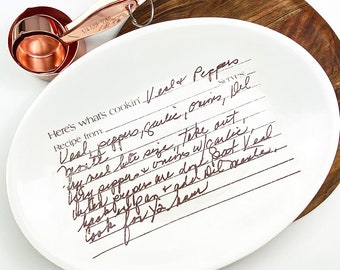 Here's what's cookin' Veal & Peppers
Recipe from SERVES
Veal, peppers, garlic, onions, Del
monte
veal bite size, take out,
fry peppers & onions w/garlic,
until peppers are done. Put Veal
back in pan & add Del monte,
cook for ½ hour